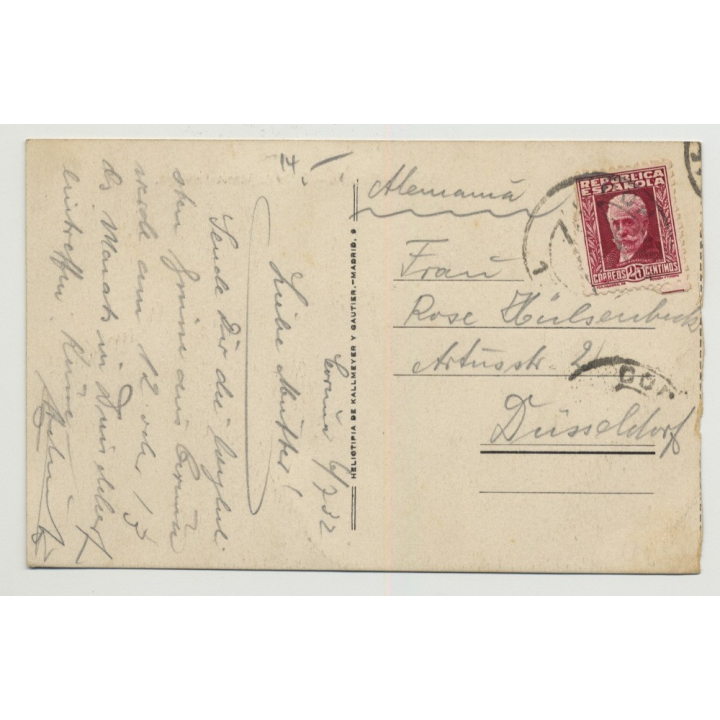 II.
Coruña 6/7 32
Liebe Mutter!
Sende Dir die herzlich
sten Grüsse aus Coruña
werde am 12 oder 13
des Monats in Düsseldorf
eintreffen.
HELIOTIPIA DE KALLMEYER Y GAUTIER.—MADRID. 9
Alemania
REPUBLICA
ESPAÑOLA
CORREOS 25 CENTIMOS
Frau
Rose Hülsenbeck
Artusstr. 21
Düsseldorf